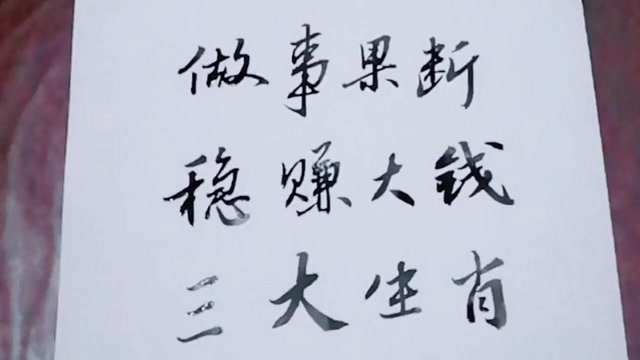 做事果断
稳赚大钱
三大生肖